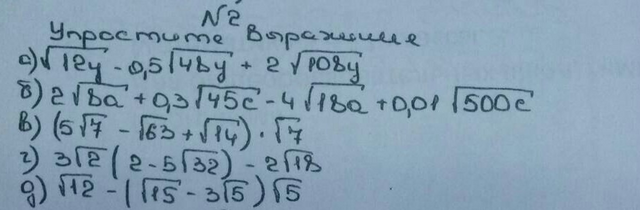 №2
Упростите выражение
а) √12y - 0,5√48y + 2√108y
б) 2√8a + 0,3√45c - 4√18a + 0,01√500c
в) (5√7 - √63 + √14) · √7
г) 3√2 (2 - 5√32) - 2√18
д) √12 - (√15 - 3√5)√5